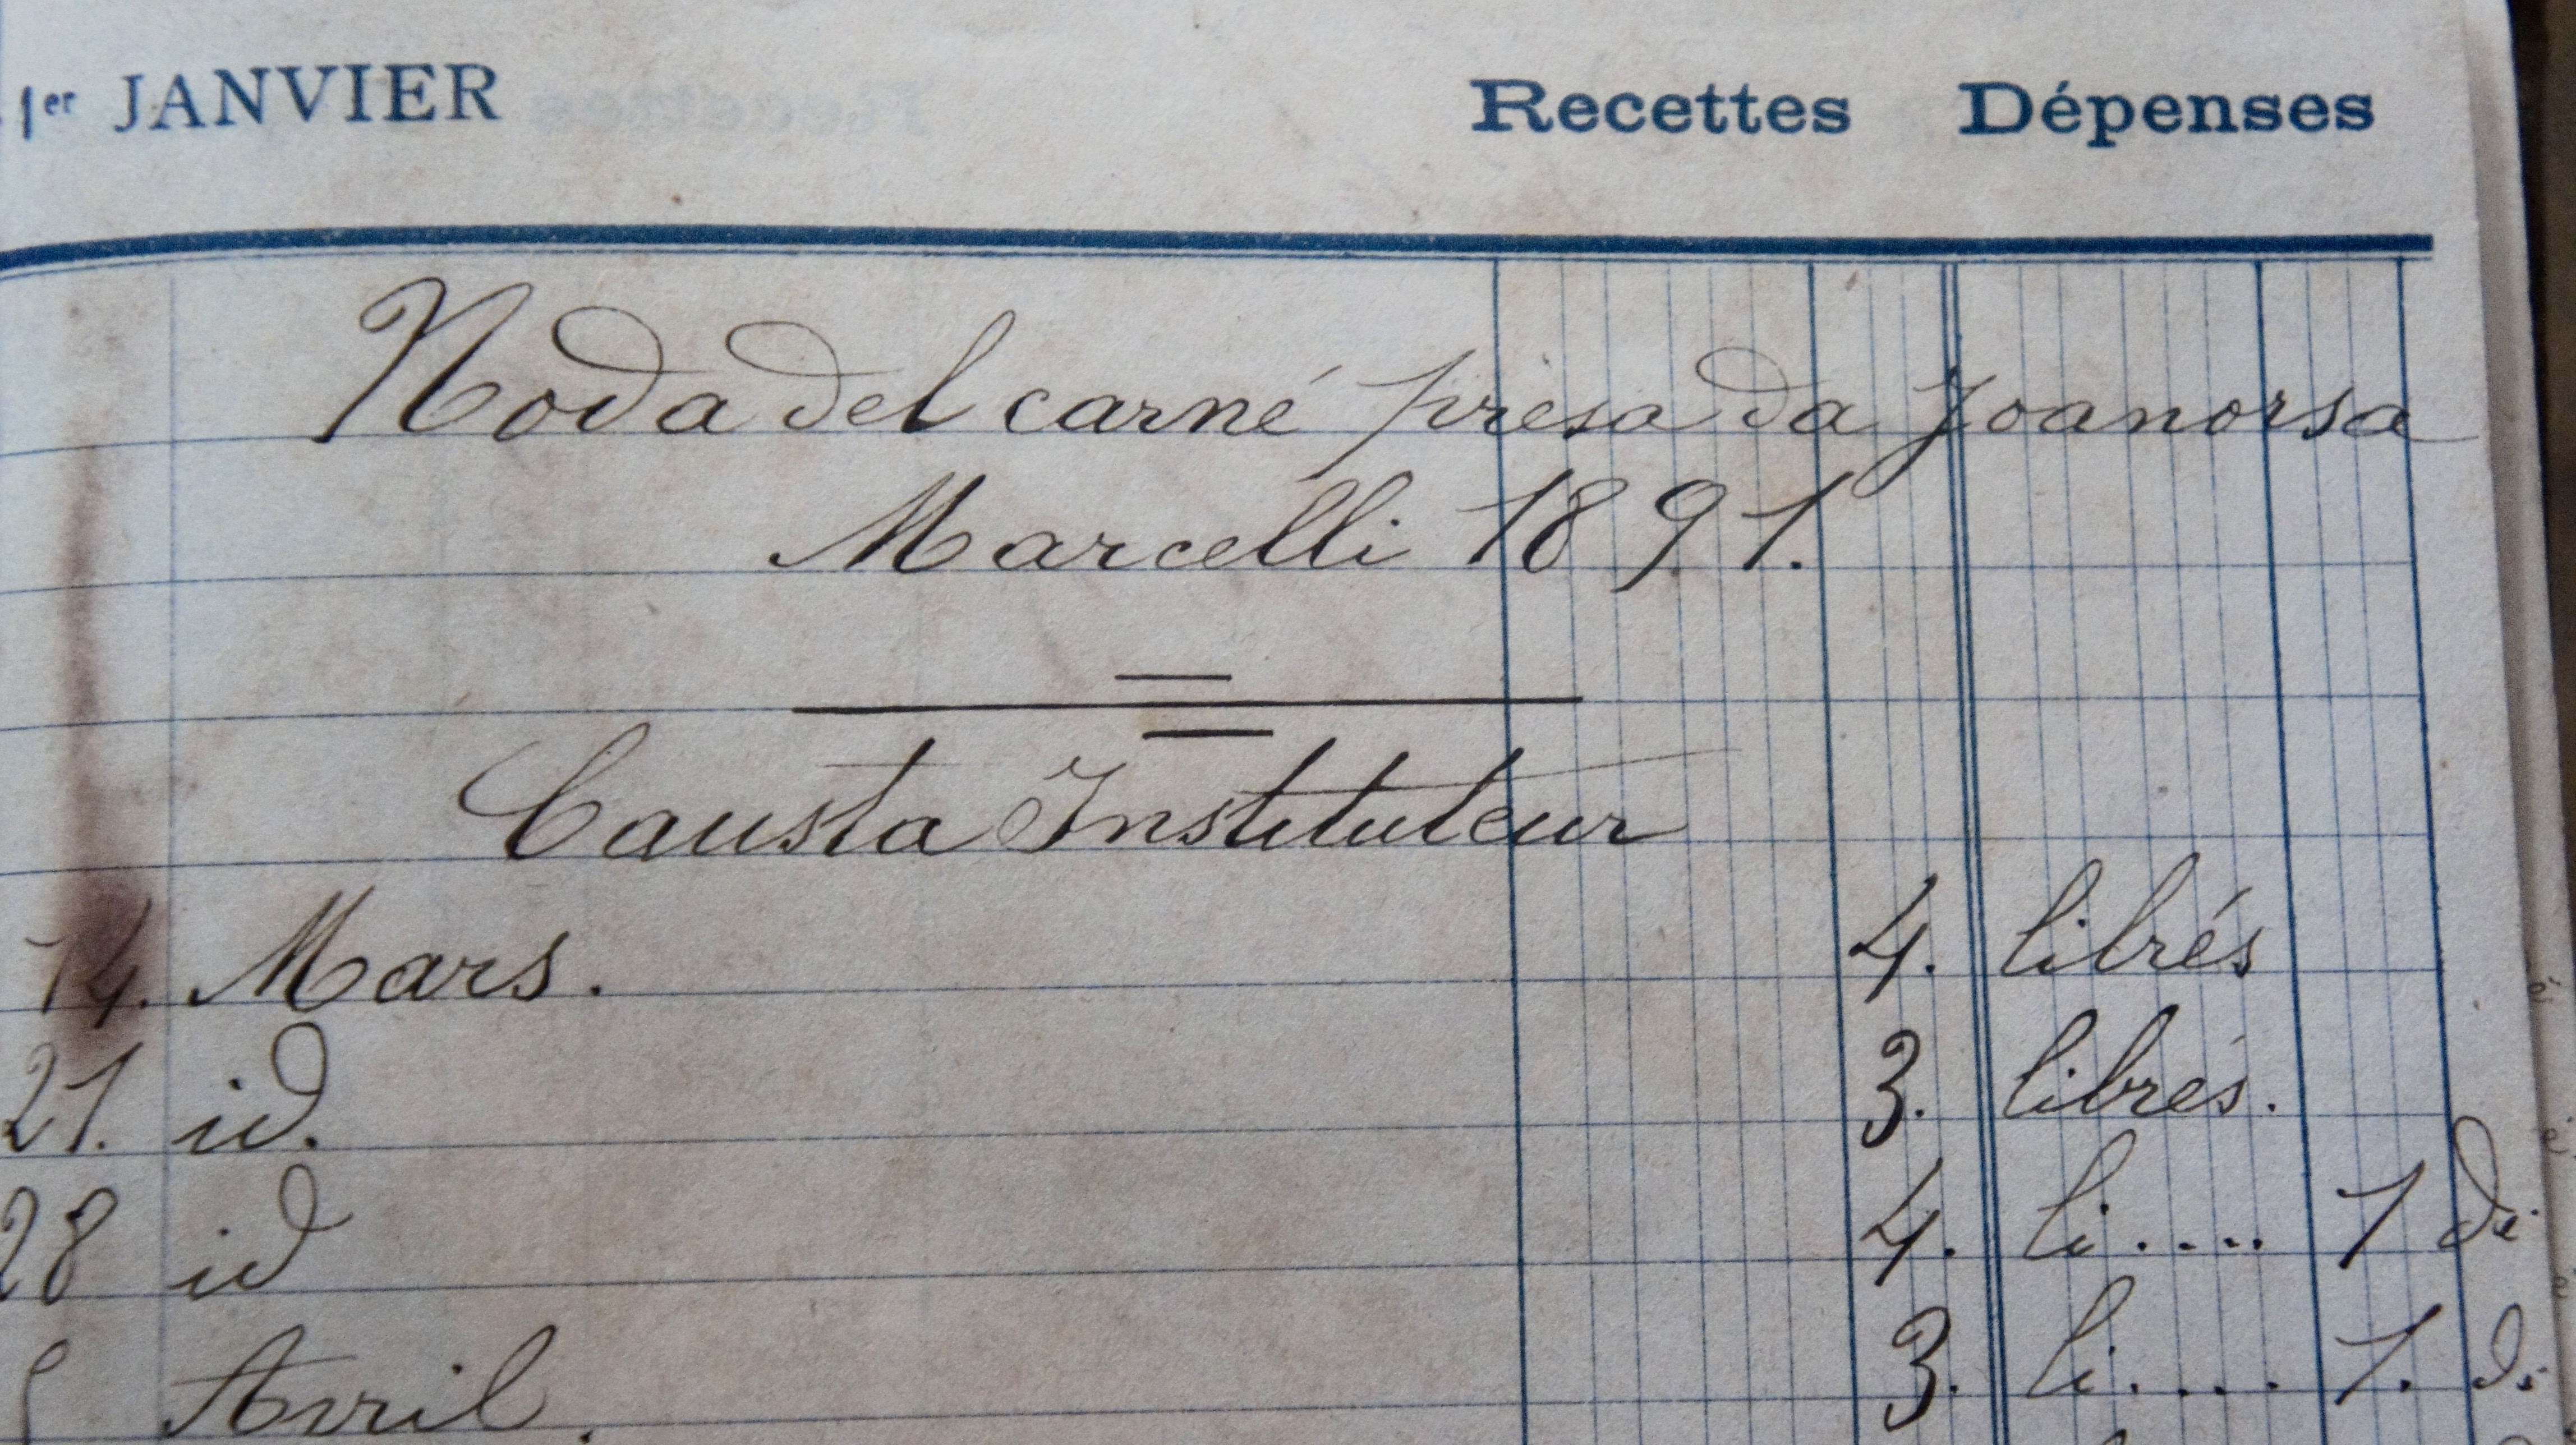 1er JANVIER Recettes Dépenses
Noda del carné presa da Joanorsa
Marcelli 1891.
Causta Instituteur
14. Mars. 4. librés
21. id. 3. librés.
28 id 4. li.... 1 di
Avril. 3. li.... 1. di